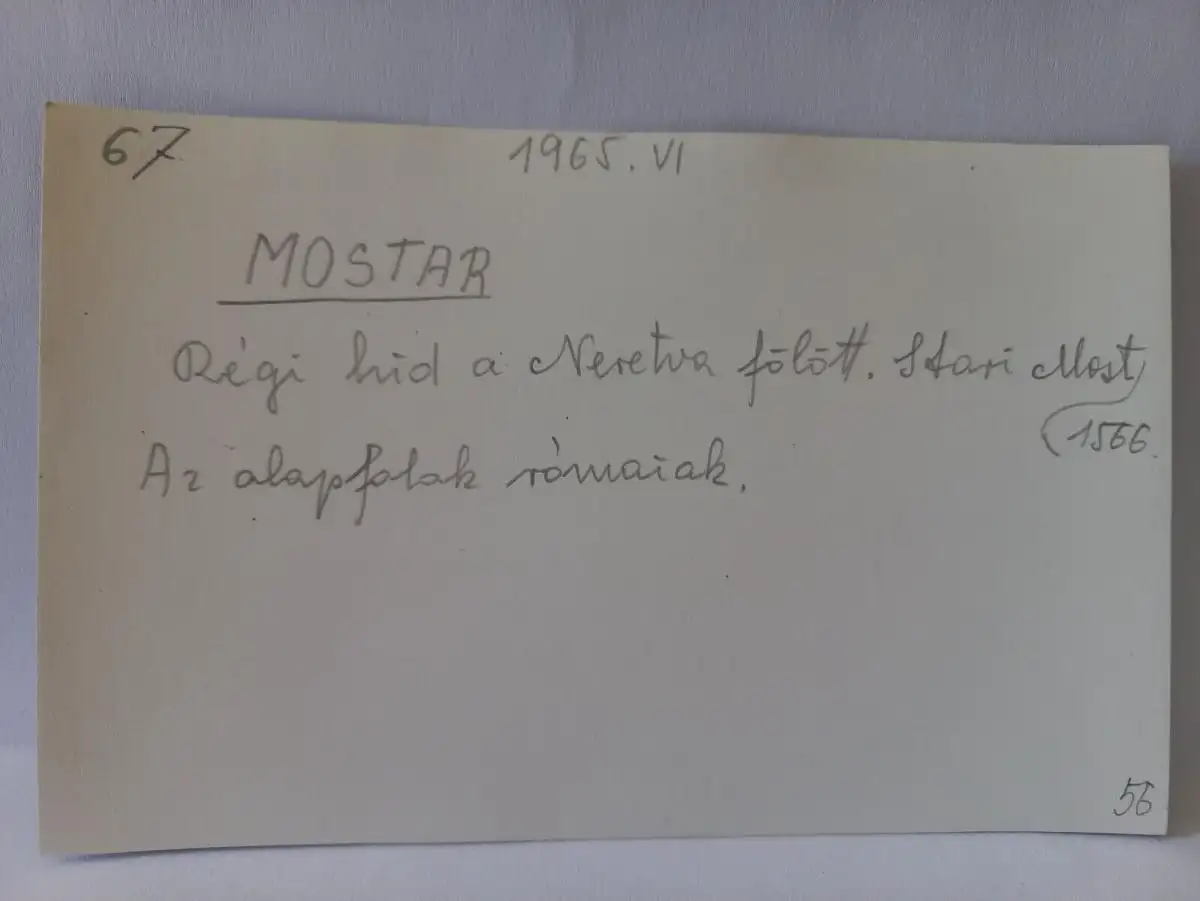 67 1965. VI
MOSTAR
Régi hid a Neretva fölött. Stari Most
(1566.
Az alapfalak rómaiak.
56